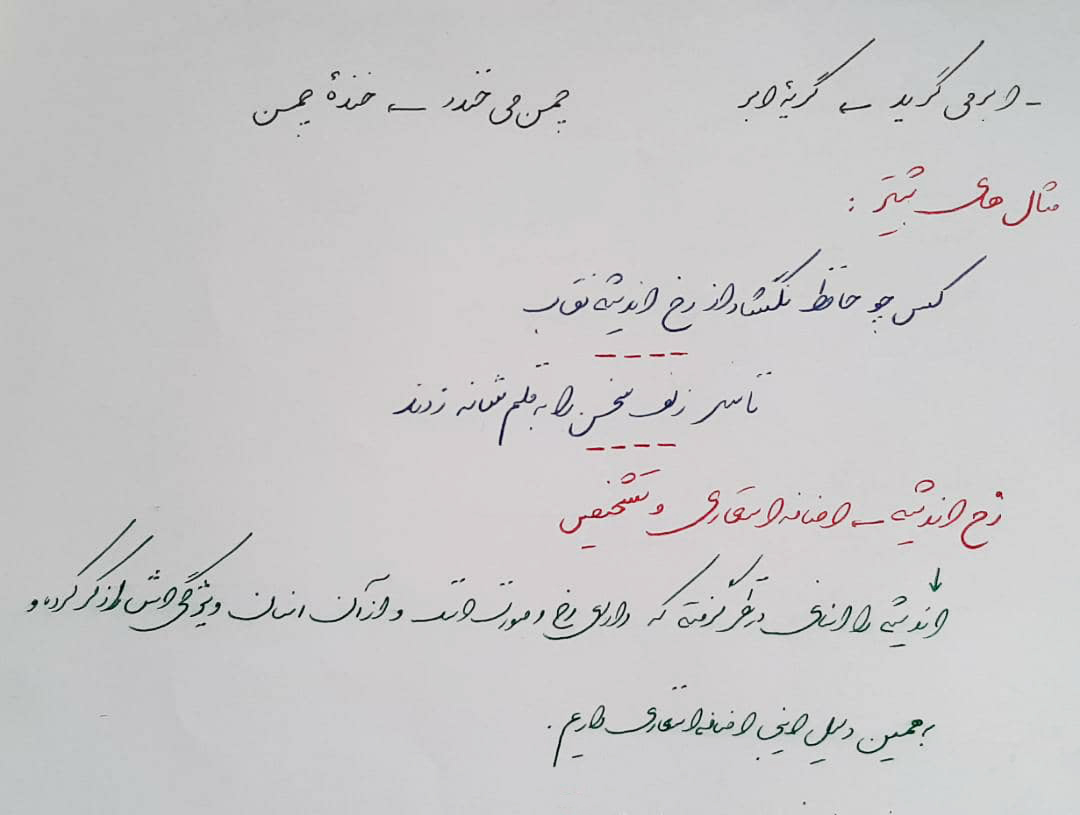 - ابر می گرید ← گریهٔ ابر     چمن می خندد ← خندهٔ چمن
مثال های بیشتر :
کس چو حافظ نگشاد از رخ اندیشه نقاب
تا سر زلف سخن را به قلم شانه زدند
رخ اندیشه ← اضافه استعاری و تشخیص
اندیشه را انسانی در نظر گرفته که دارای رخ و صورت است و از آن انسان ویژگی اش را ذکر کرده و
به همین دلیل اینجا اضافه استعاری داریم .